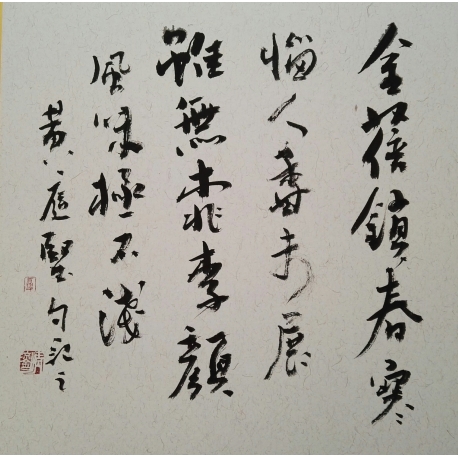 金蓓鎖春寒
惱人香未展
雖無桃李顏
風味極不淺
黃庭堅句